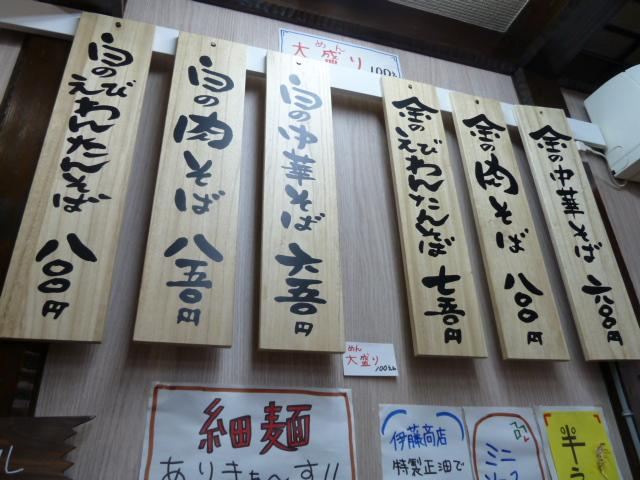 めん
大盛り 100エン
白のえびわんたんそば 八〇〇円
白の肉そば 八五〇円
白の中華そば 六五〇円
金のえびわんたんそば 七五〇円
金の肉そば 八〇〇円
金の中華そば 六〇〇円
めん
大盛り
100エン
細麺
ありまーす!!
伊藤商店
特製正油で
ミニ
半